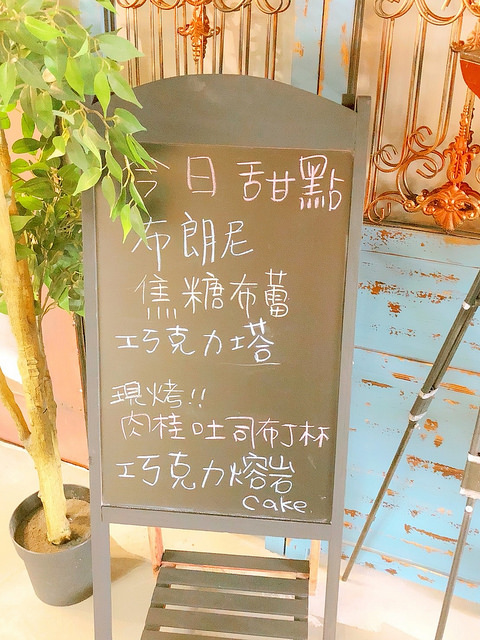 今日甜點
布朗尼
焦糖布蕾
巧克力塔
現烤!!
肉桂吐司布丁杯
巧克力熔岩
cake